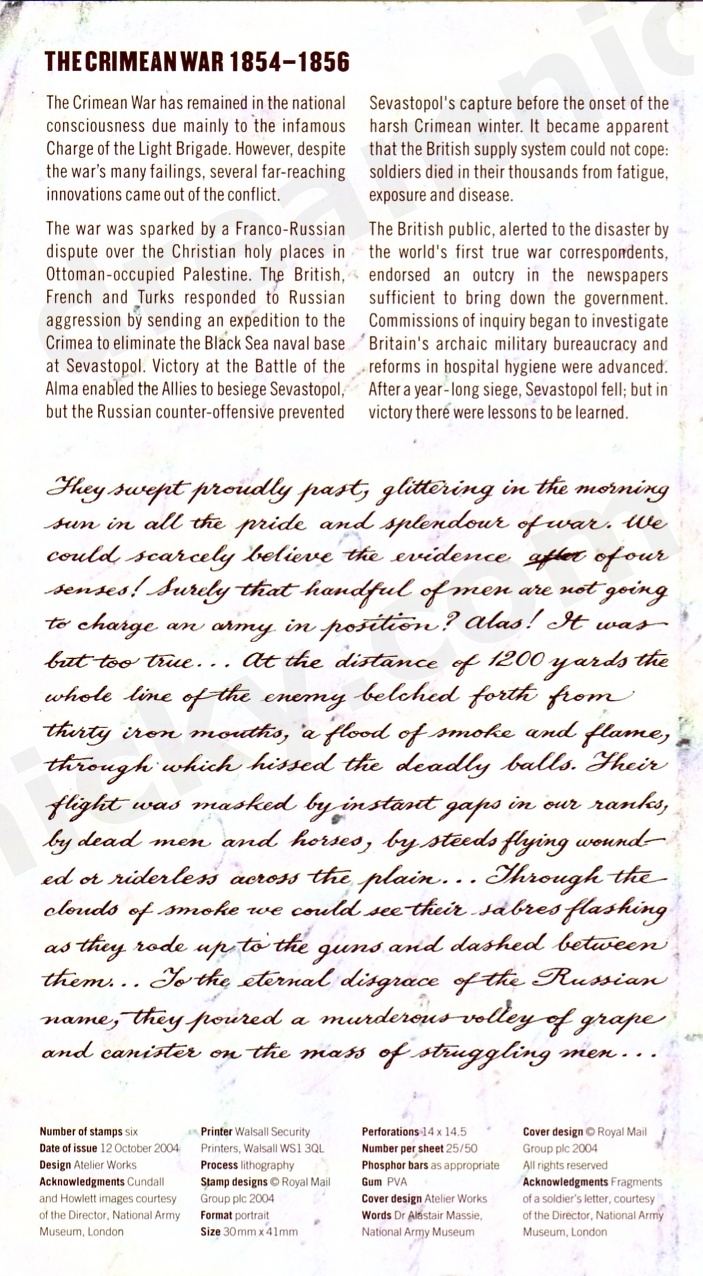 THE CRIMEAN WAR 1854–1856
The Crimean War has remained in the national
consciousness due mainly to the infamous
Charge of the Light Brigade. However, despite
the war's many failings, several far-reaching
innovations came out of the conflict.
The war was sparked by a Franco-Russian
dispute over the Christian holy places in
Ottoman-occupied Palestine. The British,
French and Turks responded to Russian
aggression by sending an expedition to the
Crimea to eliminate the Black Sea naval base
at Sevastopol. Victory at the Battle of the
Alma enabled the Allies to besiege Sevastopol,
but the Russian counter-offensive prevented
Sevastopol's capture before the onset of the
harsh Crimean winter. It became apparent
that the British supply system could not cope:
soldiers died in their thousands from fatigue,
exposure and disease.
The British public, alerted to the disaster by
the world's first true war correspondents,
endorsed an outcry in the newspapers
sufficient to bring down the government.
Commissions of inquiry began to investigate
Britain's archaic military bureaucracy and
reforms in hospital hygiene were advanced.
After a year-long siege, Sevastopol fell; but in
victory there were lessons to be learned.
They swept proudly past, glittering in the morning
sun in all the pride and splendour of war. We
could scarcely believe the evidence after of our
senses! Surely that handful of men are not going
to charge an army in position? Alas! It was
but too true... At the distance of 1200 yards the
whole line of the enemy belched forth from
thirty iron mouths, a flood of smoke and flame,
through which hissed the deadly balls. Their
flight was masked by instant gaps in our ranks,
by dead men and horses, by steeds flying wound-
ed or riderless across the plain... Through the
clouds of smoke we could see their sabres flashing
as they rode up to the guns and dashed between
them... To the eternal disgrace of the Russian
name, they poured a murderous volley of grape
and canister on the mass of struggling men...
Number of stamps six
Date of issue 12 October 2004
Design Atelier Works
Acknowledgments Cundall
and Howlett images courtesy
of the Director, National Army
Museum, London
Printer Walsall Security
Printers, Walsall WS1 3QL
Process lithography
Stamp designs © Royal Mail
Group plc 2004
Format portrait
Size 30mm x 41mm
Perforations 14 x 14.5
Number per sheet 25/50
Phosphor bars as appropriate
Gum PVA
Cover design Atelier Works
Words Dr Alastair Massie,
National Army Museum
Cover design © Royal Mail
Group plc 2004
All rights reserved
Acknowledgments Fragments
of a soldier's letter, courtesy
of the Director, National Army
Museum, London